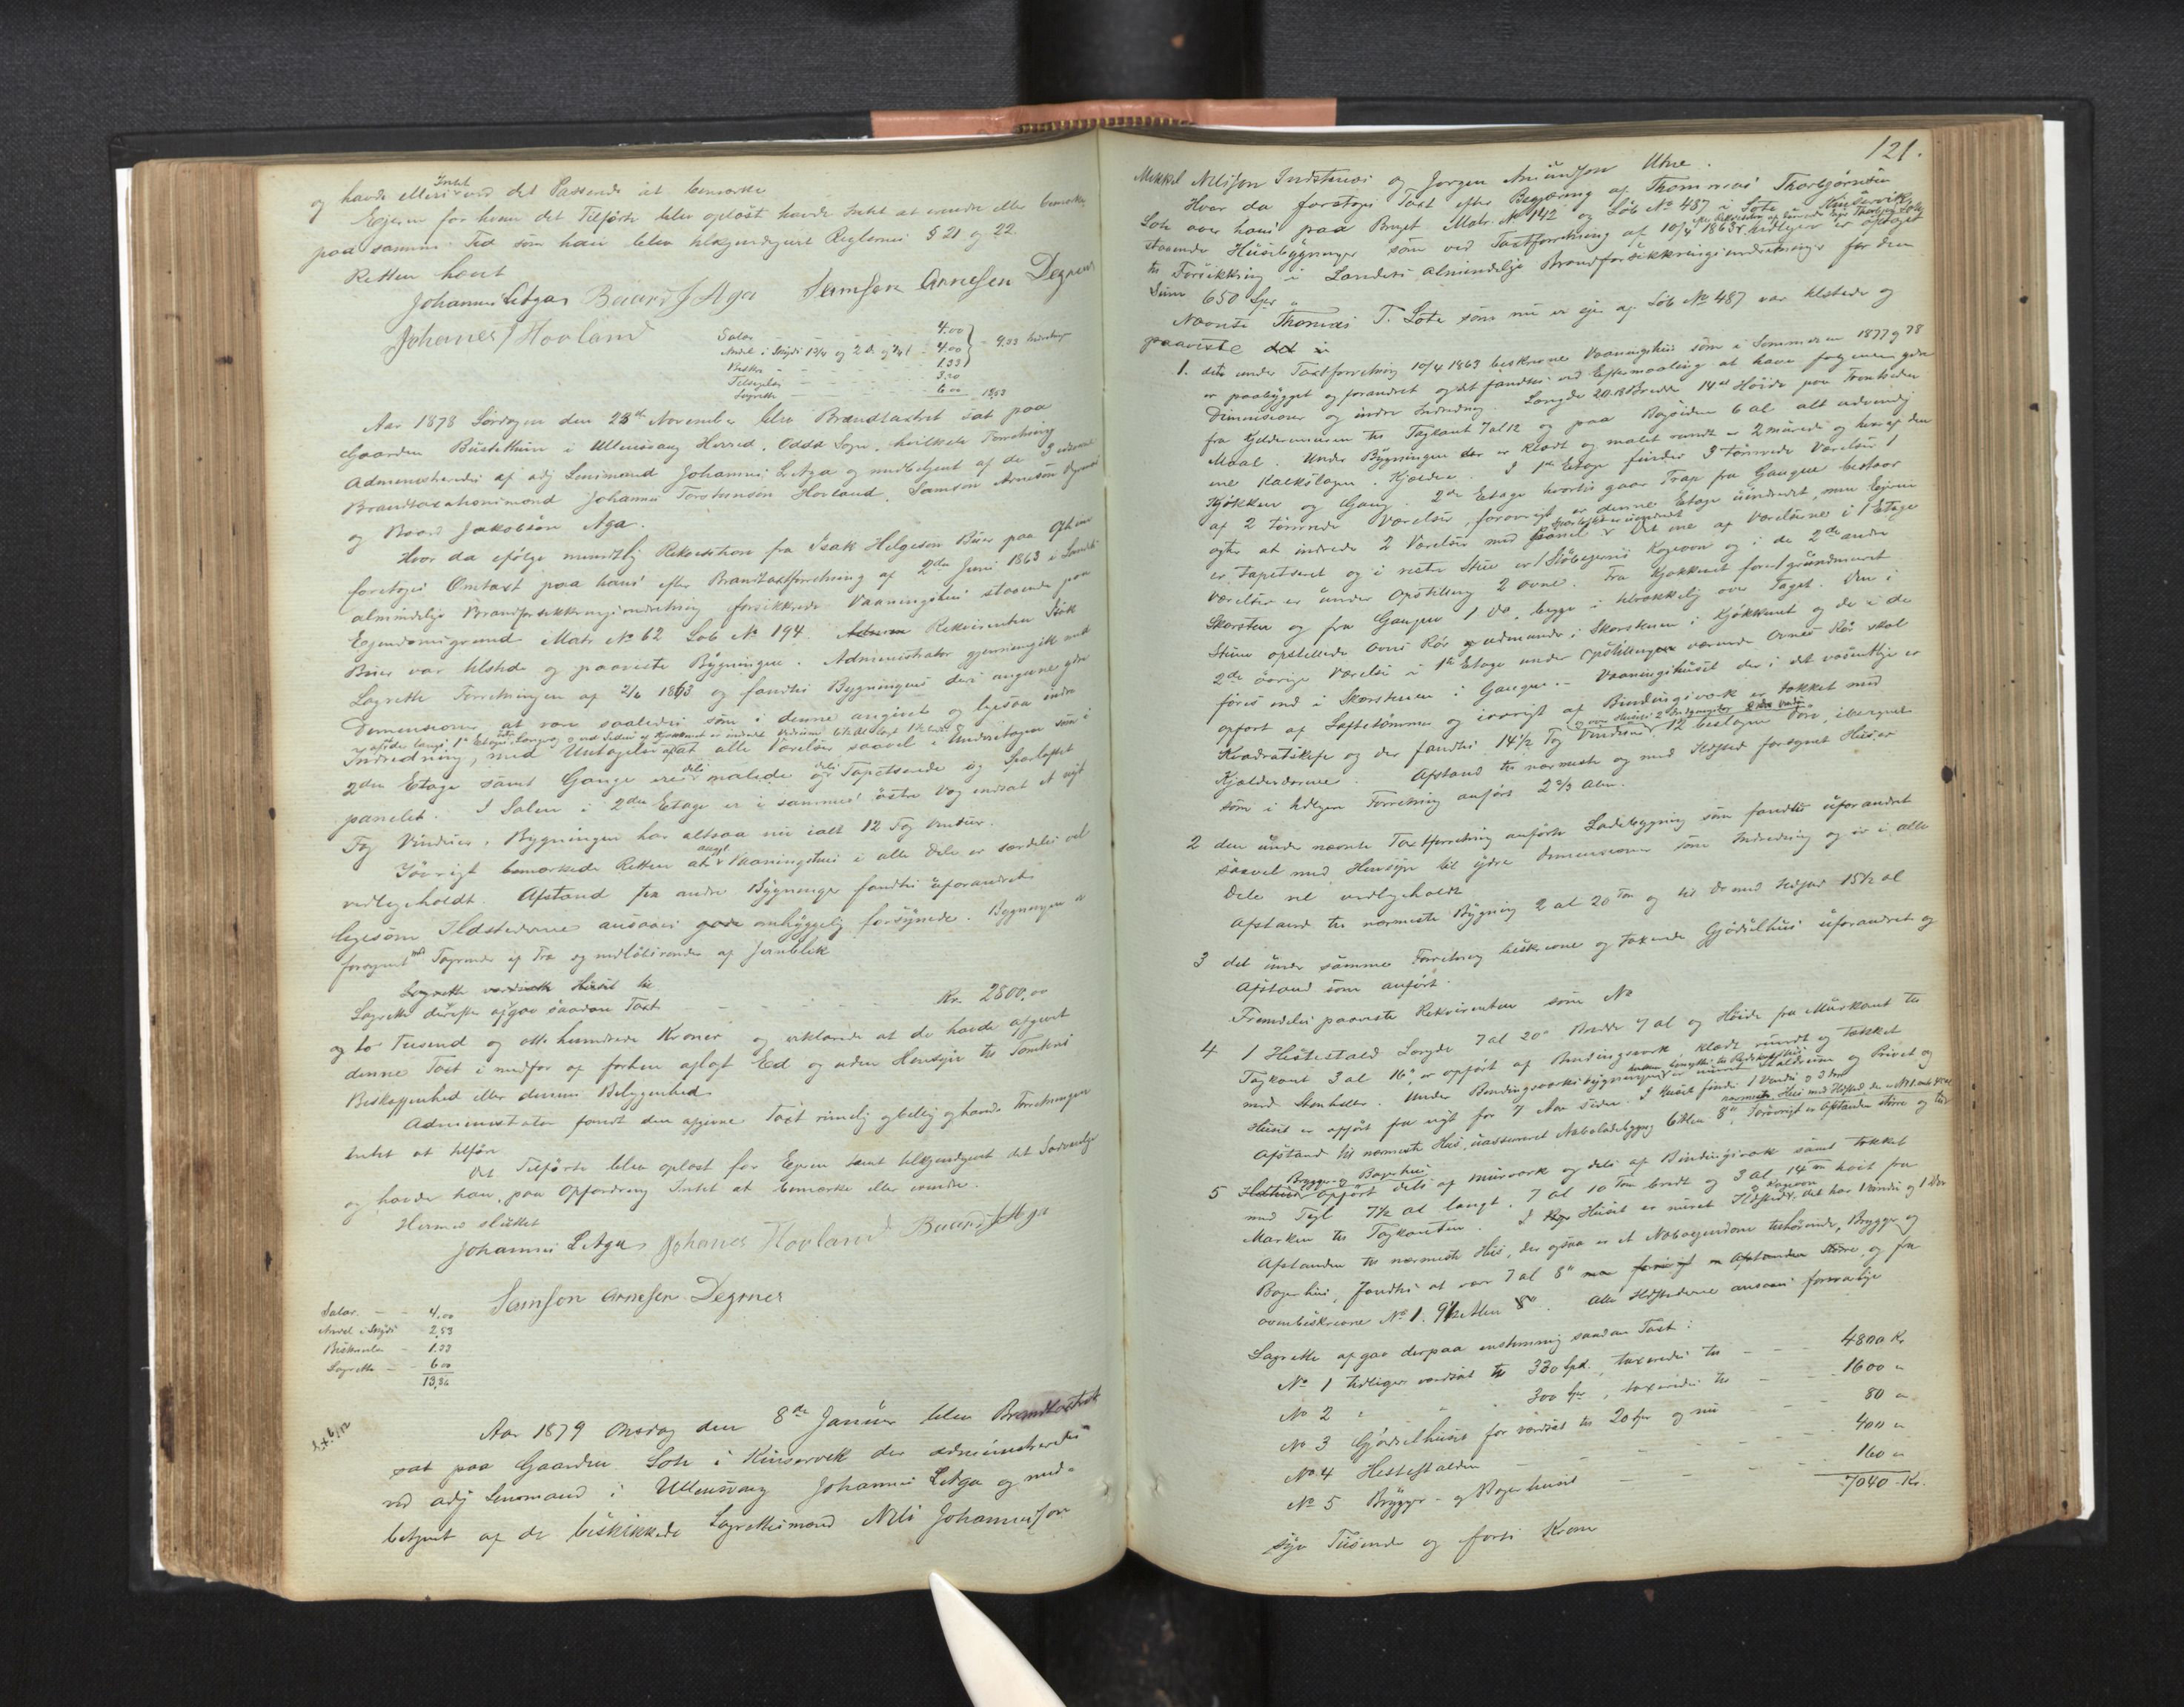 og havde ellers Intet ved det Passende at bemærke
Ejeren for hvem det Tilførte blev oplæst havde Intet at erindre eller bemærke
paa samme Ted som han blev tilkjendegivet Reglernes § 21 og 22.
Retten hævet
Johannes L Aga Baard J Aga Samson Arnesen Degrnes
Johanes T Hovland
Salar 4.00
Andel i Skyds 13/4 og 4.00 - 9.33
1.33
Tilsyn 3.20
Lagrette 6.00
Aar 1878 Lørdagen den 23de November blev Brandtaxtret sat paa
Gaarden Bustethun i Ullensvang Herred, Odda Sogn, hvilken Forretning
administreredes af adj Lensmand Johannes L Aga og medbetjent af de 3
Brandtaxationsmænd Johannes Torstensen Hovland, Samson Arneson
og Baard Jakobsøn Aga.
Hvor da ifølge mundtlig Rekvisition fra Isak Helgeson Buer paa
foretoges Omtaxt paa hans efter Brandtaxtforretning af 2den Juni 1863 i Landets
almindelige Brandforsikkringsindretning forsikkrede Vaaningshus staaende paa
Ejendomsgrund Matr No 62 Løb No 194. Rekvirenten Isak
Buer var tilstede og paaviste Bygningen. Administrator gjennemgik med
Lagrette Forretningen af 2/6 1863 og fandtes Bygningens deri angivne ydre
Dimensioner at være saaledes som i denne angivet og ligesaa indre
Indredning, med Undtagelse af at alle Værelser saavel i Underetagen som i
2den Etage samt Gange ere dels malede og dels Tapetserede og
panelet. I Salen i 2den Etage er i sammes østre Væg indsat et nyt
Fag Vinduer, Bygningen har altsaa nu ialt 12 Fag Vinduer.
Iøvrigt bemærkede Retten at Vaaningshus i alle Dele er særdeles vel
vedligeholdt. Afstand fra andre Bygninger fandtes uforandret
ligesom Ildstederne ansaaes omhyggelig forsynede. Bygningen er
forsynet med Tagrender af Træ og nedløbsrender af Jernblik
Lagrette værdsatte Huset til
Lagrette derefter afgav saadan Taxt - - - Kr. 2800,00
og to Tusend og otte hundrede Kroner og erklærede at de havde afgivet
denne Taxt i medfør af forhen aflagt Ed og uden Hensyn til Tomtens
Beskaffenhed eller dennes Beliggenhed
Administrator fandt den afgivne Taxt rimelig og billig og havde Forretningen
Intet at tilføre.
Det Tilførte blev oplæst for Ejeren samt tilkjendegivet det Fornødne
og havde han, paa Opfordring Intet at bemærke eller erindre.
Hermed sluttet
Johannes L Aga Johanes Hovland Baard J Aga
Samson Arnesen Degrnes
Salar - - 4.00
Andel i Skyds 2,53
Beskuelse - 1.33
Lagrette - - 6 00
13,86
Aar 1879 Onsdag den 8de Januar blev Brandtaxtret
sat paa Gaarden Lote i Kinservik der administreredes
ved adj Lensmand i Ullensvang Johannes L Aga og med-
betjent af de beskikkede Lagrettesmænd Nils Johannesson
121.
Mikkel Nilsson Indstenæs og Jørgen Amundson Utne.
Hvor da foretoges Taxt efter Begjæring af Thommas Thorbjørnsen
Lote over hans paa Bruget Matr. No 142 og Løb No 487 i Lote, Kinservik,
staaende Husebygninger som ved Taxtforretning af 10/4 1863 tidligere er optaget
til Forsikkring i Landets almindelige Brandforsikkringsindretninger for den
Sum 650 Spr
Nævnte Thomas T. Lote som nu er ejer af Løb No 487 var tilstede og
paaviste
1. det under Taxtforretning 10/4 1863 beskrevne Vaaningshus som i Sommeren 1877 og 78
er paabygget og forandret og det fandtes ved Eftermaaling at have følgende ydre
Dimensioner og indre Indredning. Længde 20 al Bredde 14 al Høide paa Frontsiden
fra Kjeldermuren til Tagkant 7 al 12 og paa Bagsiden 6 al alt udvendig
Maal. Under Bygningen der er klædt og malet rundt er 2 murede og hvoraf den
ene kalkslagen, Kjældere. I 1ste Etage findes 3 tømrede Værelser 1
Kjøkken og Gang. 2den Etage hvortil gaar Trap fra Gangen bestaar
af 2 tømrede Værelser, forøvrigt er denne Etage uindredet, men Ejeren
agter at indrede 2 Værelser med Panel. Det ene af Værelserne i 1 Etage
er Tapetseret og i nestre Stue er 1 Støbejerns Kogeovn og i de 2de andre
Værelser er under Opstilling 2 ovne. Fra Kjøkkenet fører 1 grundmuret
Skorsten og fra Gangen 1 do, begge i tilstrækkelig over Taget. Den i
Stuen opstillede Ovns Rør udmunder i Skorstenen i Kjøkkenet og de i de
2de øvrige Værelser i 1ste Etage under Opstilling værende Ovnes Rør skal
føres ind i Skorstenen i Gangen. - Vaaningshuset der i det væsentlige er
opført af Laftetømmer og iøvrigt af Bindingsværk er tækket med
Kvadratskifer og der fandtes 14 1/2 Fag Vinduer 12 beslagne Døre, iberegnet
Kjælderdørene. Afstand til nærmeste og med Ildsted forsynet Hus er
som i tidligere Forretning anført 2 2/3 Alen.
2 den under nævnte Taxtforretning anførte Ladebygning som fandtes uforandret
saavel med Hensyn til ydre Dimensioner som Indredning og er i alle
Dele vel vedligeholdt
Afstand til nærmeste Bygning 2 al 20 Tom og til do med Ildsted 15 1/2 al
3 det under samme Forretning beskrevne og taxerede Gjødselhus uforandret og
Afstand som anført.
Fremdeles paaviste Rekvirenten som No
4 1 Hestestald Længde 7 al 20" Bredde 7 al og Høide fra Murkant til
Tagkant 3 al 16", er opført af Bindingsværk klædt rundt og tækket
med Stenheller. Under Bindingsværksbygningen er muret Staldrum og Privet og
Huset er opført fra nyt for 7 Aar siden. I Huset findes 1 Vindu og 3 Døre
Afstand til nærmeste Hus, uassureret Nabolodebygg 6 Alen 8", Forøvrigt er Afstanden større og til
nærmeste Hus med Ildsted der er No 1
Brygge- og Bagerhus
5 opført dels af murværk og dels af Bindingsværk samt tækket
med Tegl 7 1/2 al langt, 7 al 10 Tom bredt og 3 al 14 Tom høit fra
Marken til Tagkanten. I Huset er muret Ildsted, det har 1 vindu og 1 Dør
Afstanden til nærmeste Hus, der ogsaa er et Naboejendom tilhørende, Brygge og
Bagerhus, fandtes at være 7 al 8" og fra
ovenbeskrevne No 1. 9 1/2 Alen. Alle Ildstederne ansaaes forsvarlige
Lagrette afgav derpaa enstemmig saadan Taxt:
No 1 tidligere værdsat til 330 Spd, taxeredes til - - 4800 Kr
No 2 " " " 300 Spr, taxeredes til - - 1600 "
No 3 Gjødselhuset før værdsat til 20 Spr og nu - - 80 "
No 4 Hestestalden - - - - 400 "
No 5 Brygge- og Bagerhuset - - - - 160 "
7040 Kr.
syv Tusende og forti Kroner